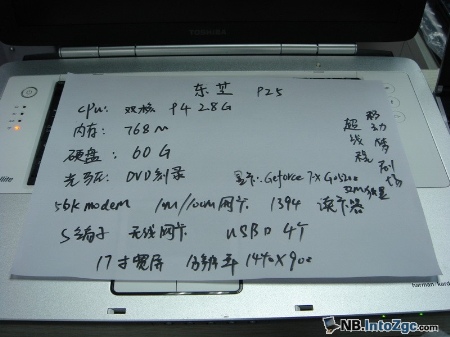 东芝 P25
CPU: 双核 P4 2.8G
内存: 768M
硬盘: 60G
光驱: DVD刻录 显卡: Geforce FX Go5200
56K modem 1M/10M网卡 1394 读卡器
S端子 无线网卡 USB口 4个
17寸宽屏 分辨率 1440X900
超线程
移动
剧场
harman/kardon
NB.IntoZgc.com